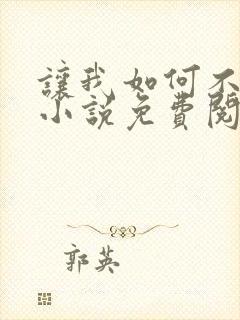 讓我如何不
小說免費閱
郭英